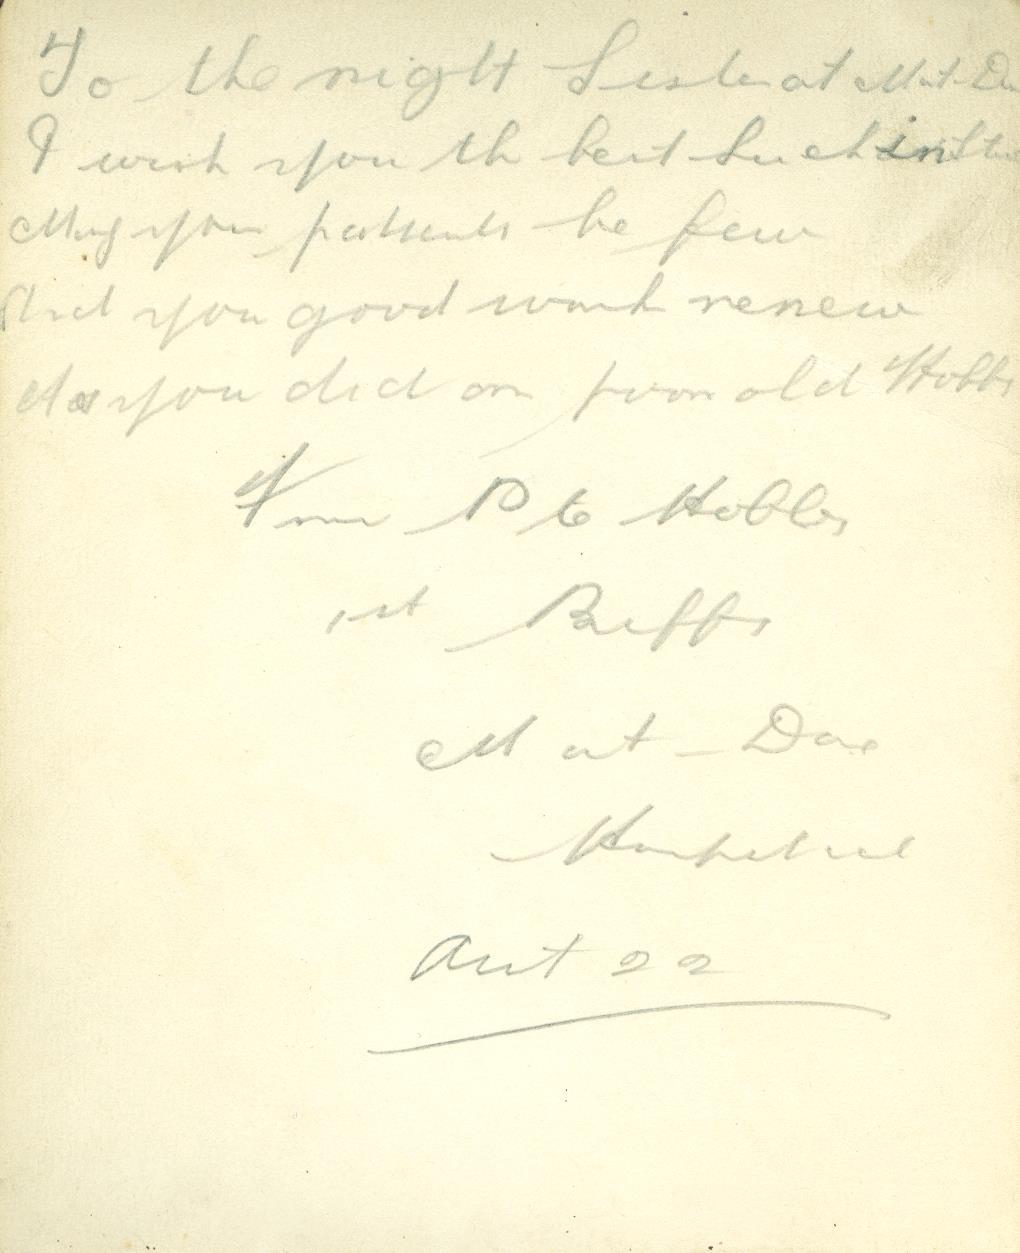 To the night Sister at Mont-Dor
I wish you th best Luck in
May your patients be few
And you good work renew
As you did on poor old Hobbs
From Pte Hobbs
1st Buffs
Mont-Dore
Hospital
22